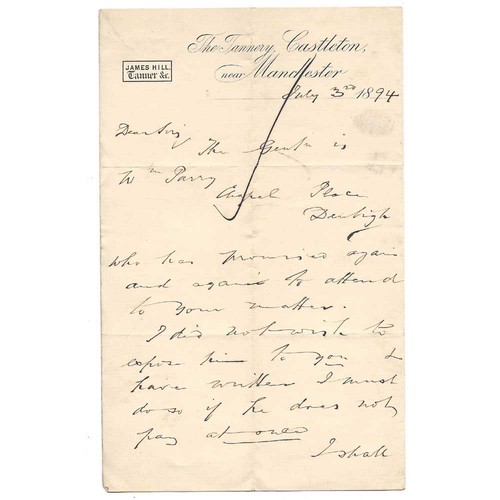 The Tannery, Castleton,
near Manchester
JAMES HILL,
Tanner &c.
July 3rd 1894
Dear Sir
The Gentn is
Wm Parry
Chapel Place
Denbigh
who has promised again
and again to attend
to your matter.
I did not wish to
expose him to you &
have written I must
do so if he does not
pay at once
I shall